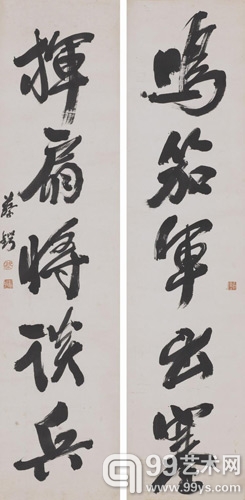 鳴笳軍出塞
揮扇時談兵
蔡鍔
99艺术网
www.99ys.com